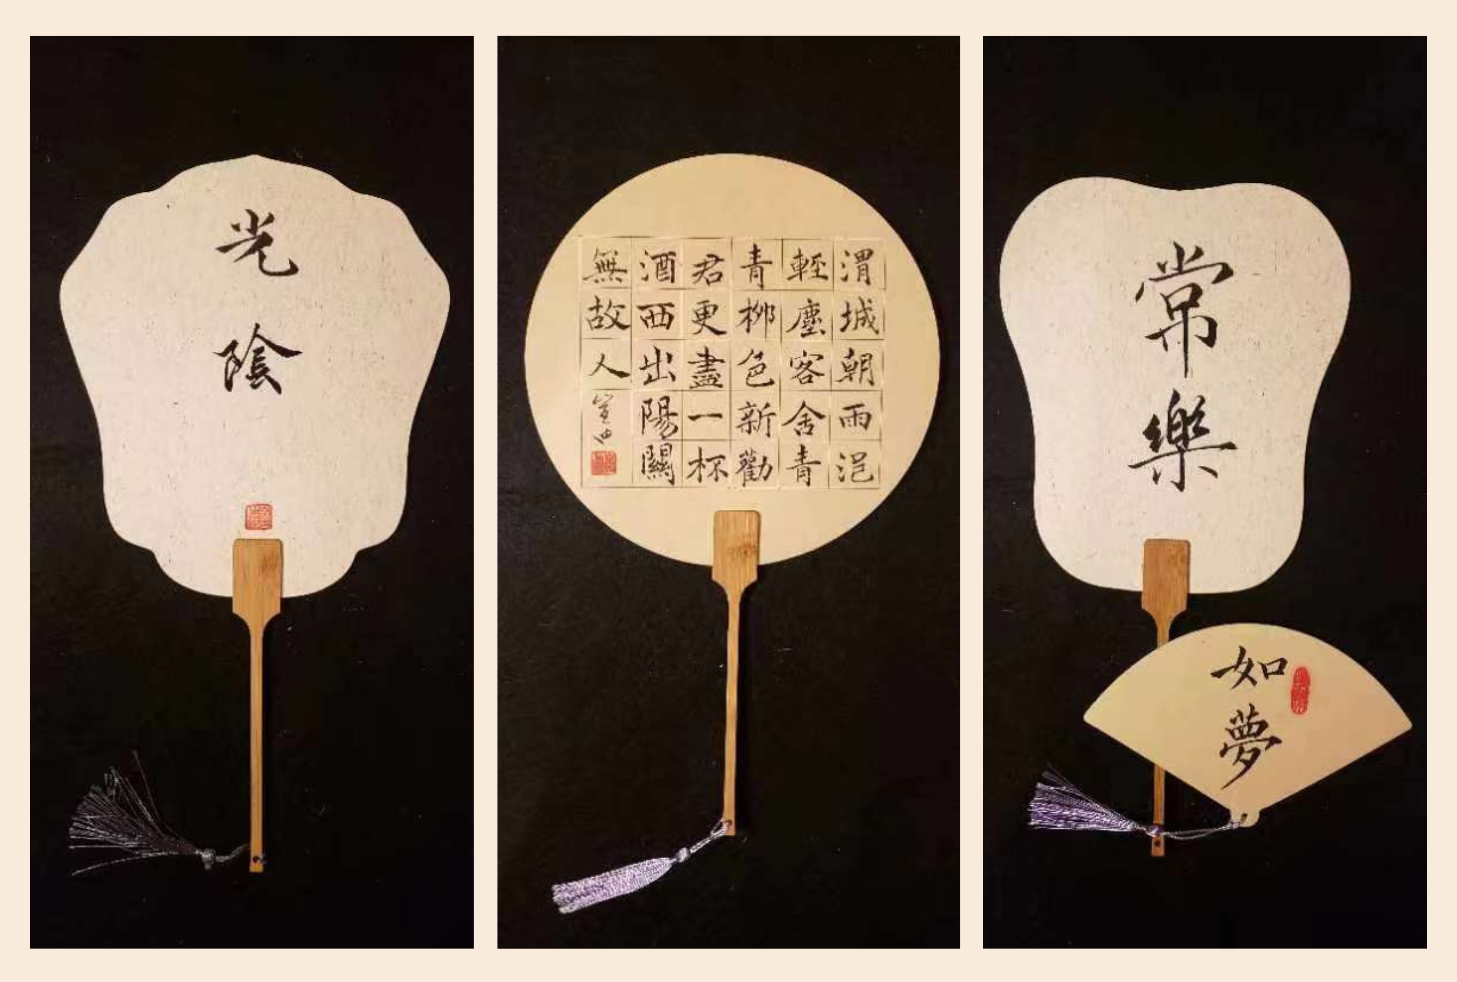 光
陰
渭城朝雨浥
輕塵客舍青
青柳色新勸
君更盡一杯
酒西出陽關
無故人
常
樂
如
夢